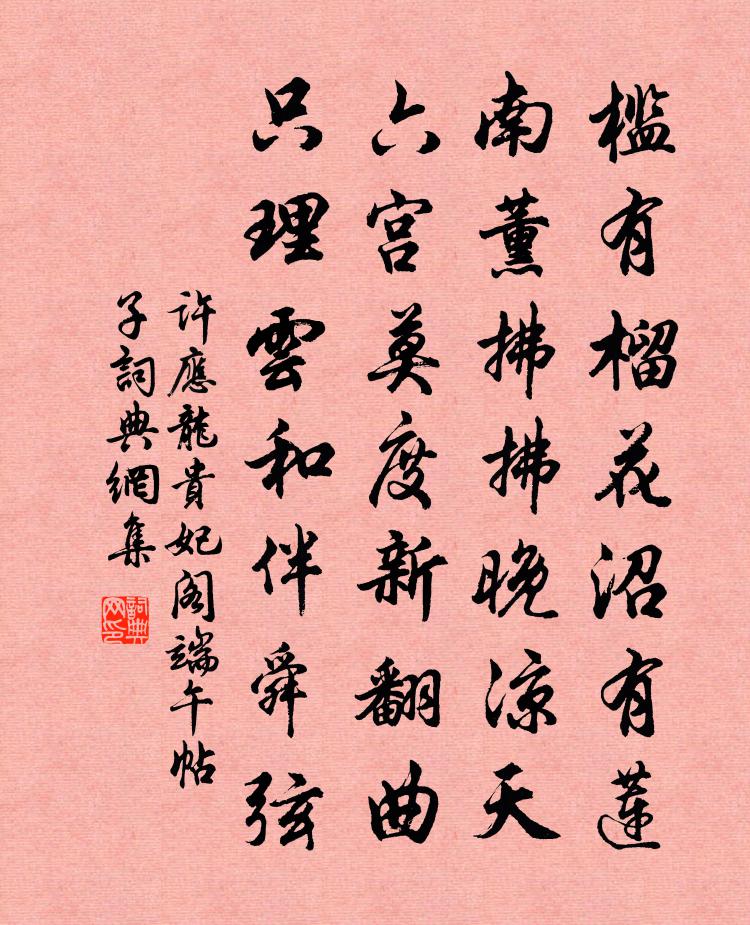 槛有榴花沼有蓮
南薰拂拂晚涼天
六宮莫度新翻曲
只理雲和伴舜弦
許應龍貴妃阁端午帖
子詞典網集
詞典網印